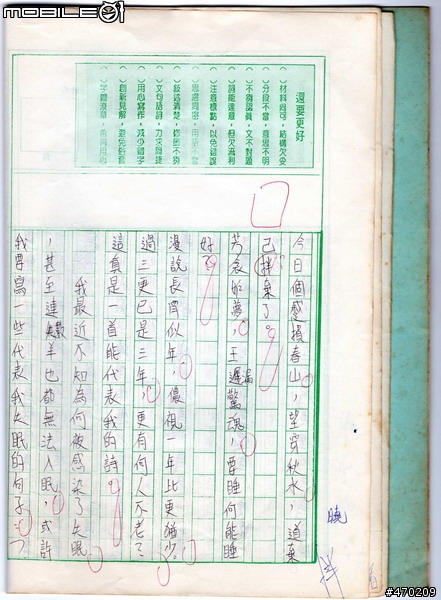 MOBILE01
還要更好
( )材料尚可，結構欠妥
( )分段不當，意思不明
( )不夠認真，文不對題
( )詞能達意，但欠流利
( )注意標點，以免錯誤
( )思慮周密，用語不當
( )敘述清楚，修飾不夠
( )文句語詞，力求簡捷
( )用心寫作，減少錯字
( )創新見解，避免俗套
( )字體潦草，希再用心
今日個感損春山，望穿秋水，道棄
已拌棄了。
芳哀如夢，王遲漏驚魂，要睡何能睡
好？
漫說長宵似年，儂視一年比更猶少。
過三更已是三年，更有何人不老？
這真是一首能代表我的詩。
我最近不知為何被感染了失眠
，甚至連數羊也都無法入眠，或許
我要寫一些代表我失眠的句子：「
曉
拌
#470209